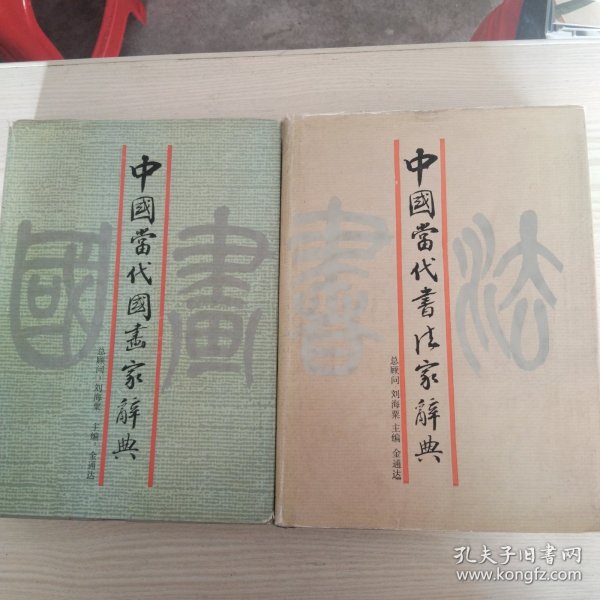 中國當代國畫家辭典
國畫
总顾问 刘海粟 主编 金通达
中國當代书法家辭典
書法
总顾问 刘海粟 主编 金通达
孔夫子旧书网
www.kongfz.com